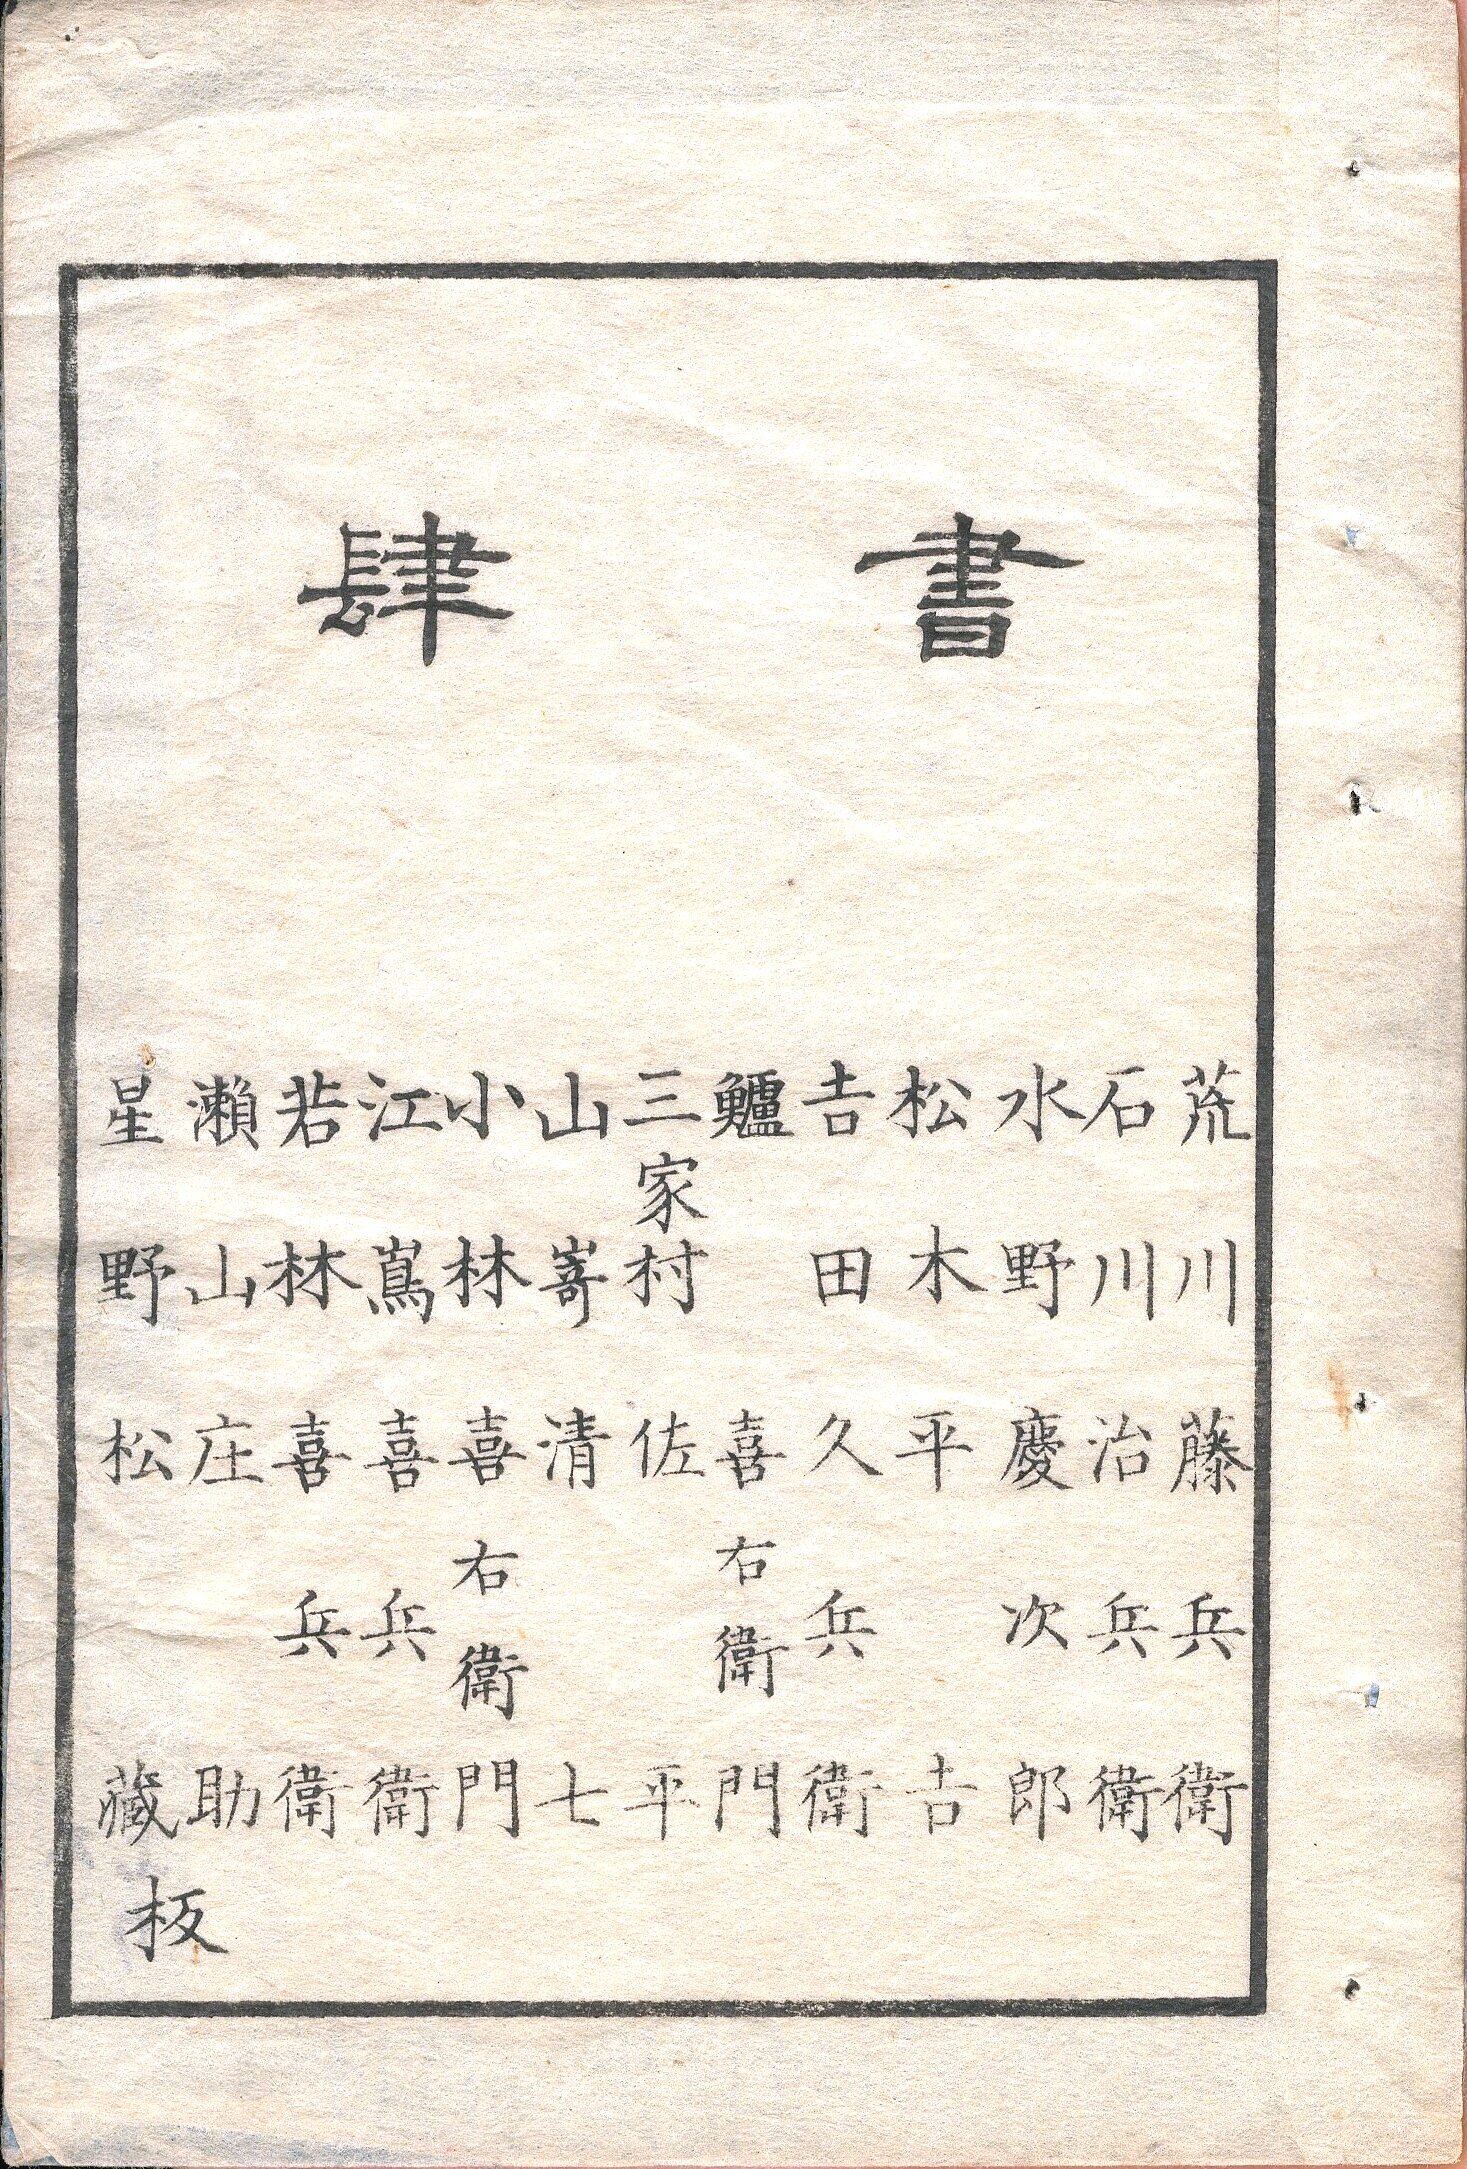 書肆
荒川藤兵衛
石川治兵衛
水野慶次郎
松木平吉
吉田久兵衛
鱸喜右衛門
三家村佐平
山嵜清七
小林喜右衛門
江嶌喜兵衛
若林喜兵衛
瀬山庄助
星野松藏
板